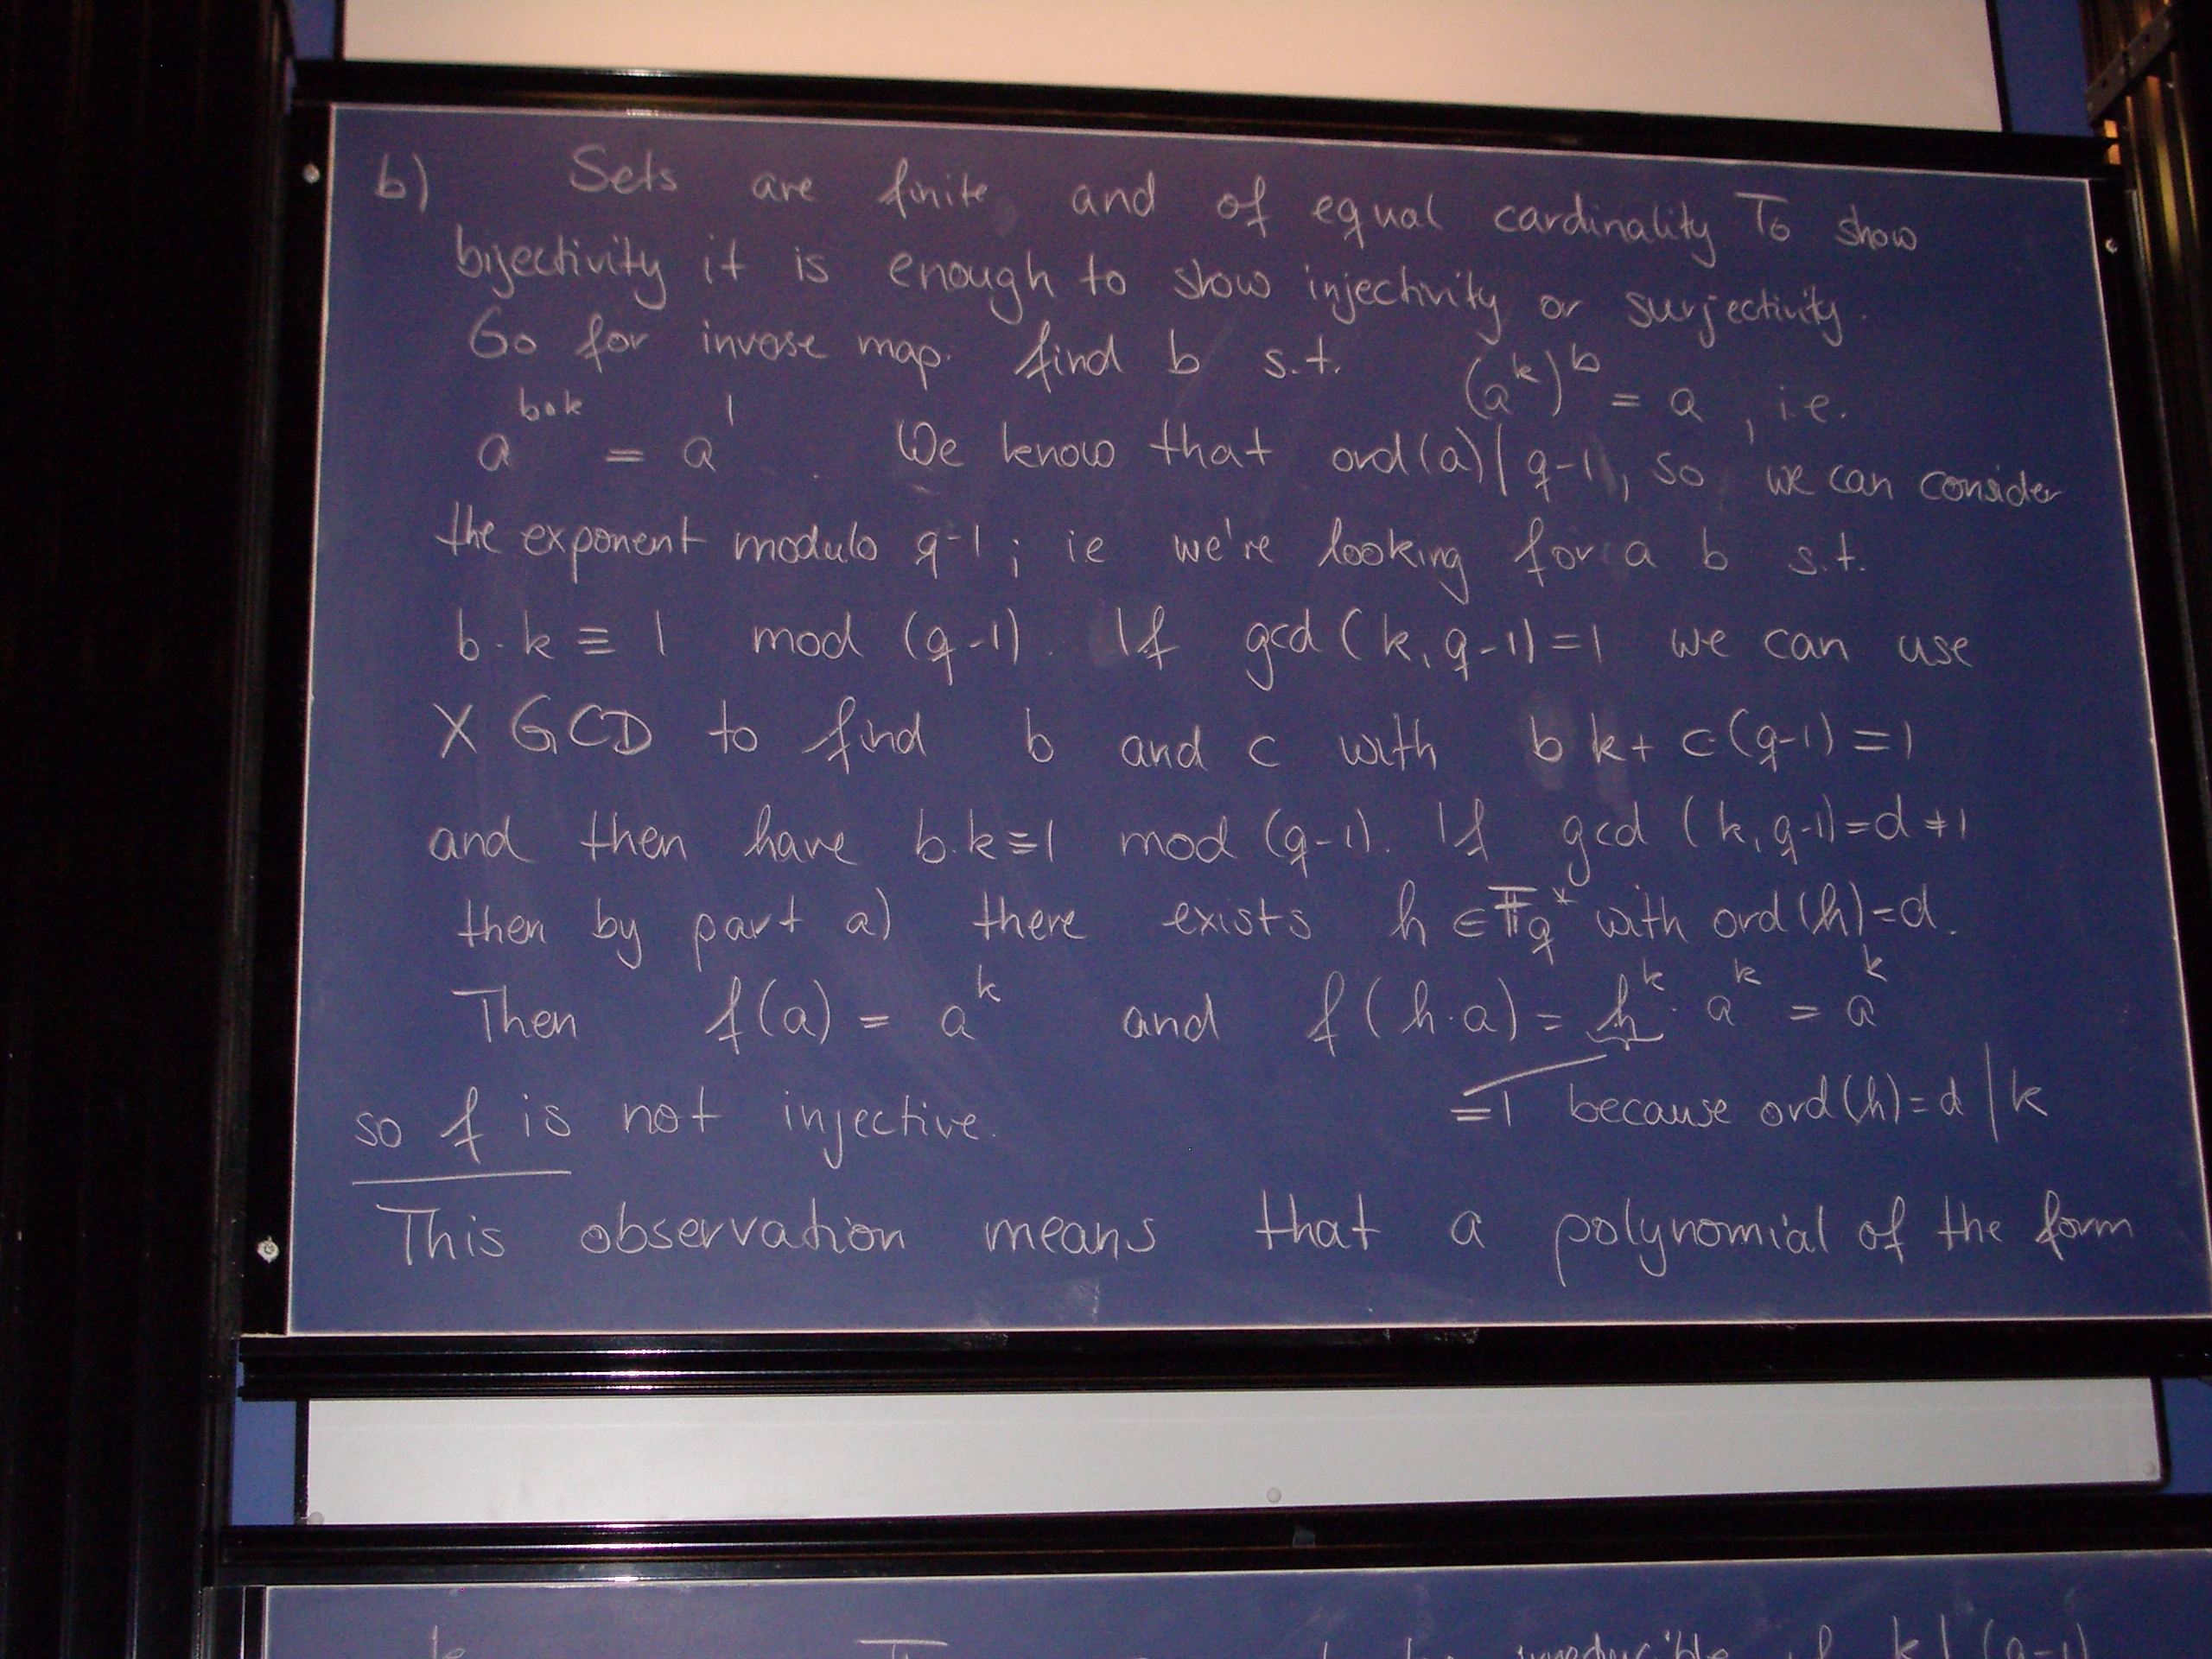 b) Sets are finite and of equal cardinality To show
bijectivity it is enough to show injectivity or surjectivity.
Go for inverse map. find b s.t. (a^k)^b = a , i.e.
a^{b·k} = a^1 . We know that ord(a) | q-1, so we can consider
the exponent modulo q-1 ; ie we're looking for a b s.t.
b·k ≡ 1 mod (q-1). If gcd(k, q-1)=1 we can use
XGCD to find b and c with b k + c(q-1) = 1
and then have b·k≡1 mod (q-1). If gcd (k, q-1)=d ≠1
then by part a) there exists h ∈ 𝔽_q^* with ord(h)=d.
Then f(a) = a^k and f(h·a) = h^k · a^k = a^k
so f is not injective. =1 because ord(h)=d | k
This observation means that a polynomial of the form
irreducible if k | (q-1)